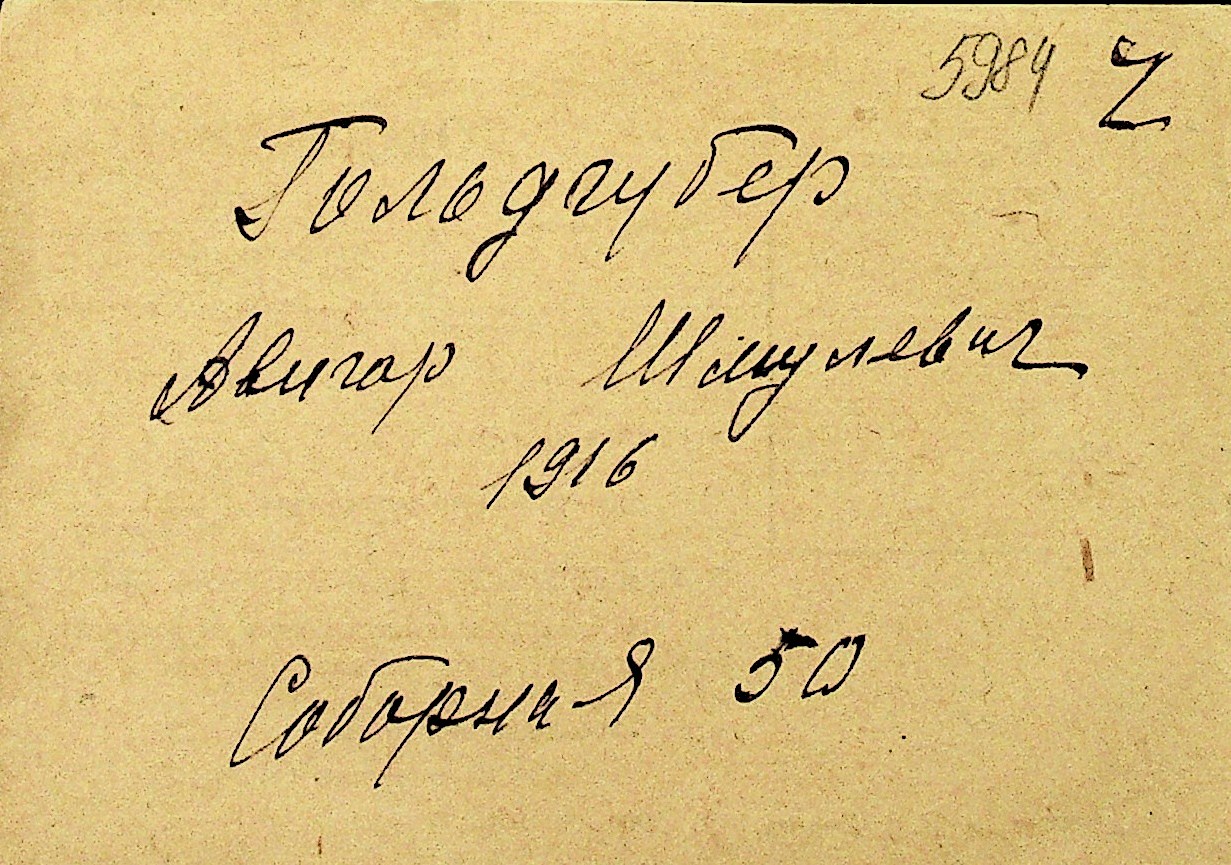 5984 Ч
Гольдгубер
Авигор Шмулевич
1916
Соборная 50